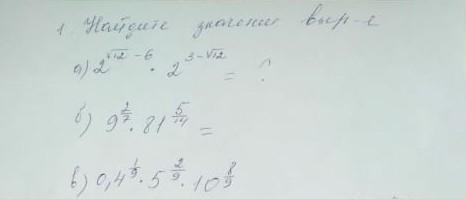 1. Найдите значение выр-е
а) 2^{√12 - 6} · 2^{3-√12} = ?
б) 9^{2/7} · 81^{5/14} =
в) 0,4^{1/9} · 5^{2/9} · 10^{8/9}